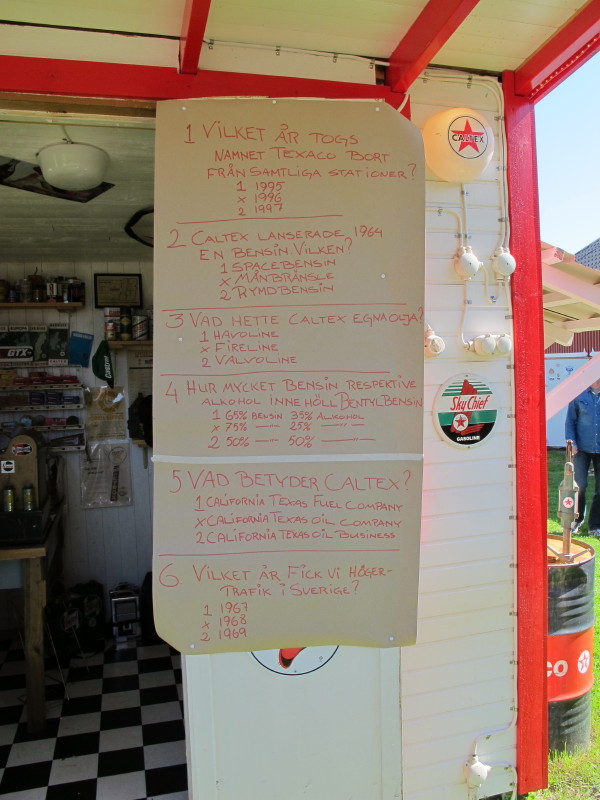 1 VILKET ÅR TOGS
NAMNET TEXACO BORT
FRÅN SAMTLIGA STATIONER?
1 1995
x 1996
2 1997
2 CALTEX LANSERADE 1964
EN BENSIN VILKEN?
1 SPACEBENSIN
x MÅNBRÄNSLE
2 RYMDBENSIN
3 VAD HETTE CALTEX EGNA OLJA?
1 HAVOLINE
x FIRELINE
2 VALVOLINE
4 HUR MYCKET BENSIN RESPEKTIVE
ALKOHOL INNEHÖLL BENTYLBENSIN
1 65% BENSIN 35% ALKOHOL
x 75% —"— 25% —"—
2 50% —"— 50% —"—
5 VAD BETYDER CALTEX?
1 CALIFORNIA TEXAS FUEL COMPANY
x CALIFORNIA TEXAS OIL COMPANY
2 CALIFORNIA TEXAS OIL BUSINESS
6. VILKET ÅR FICK VI HÖGER-
TRAFIK I SVERIGE?
1 1967
x 1968
2 1969
CALTEX
Sky Chief
GASOLINE
GTX
Castrol
CO